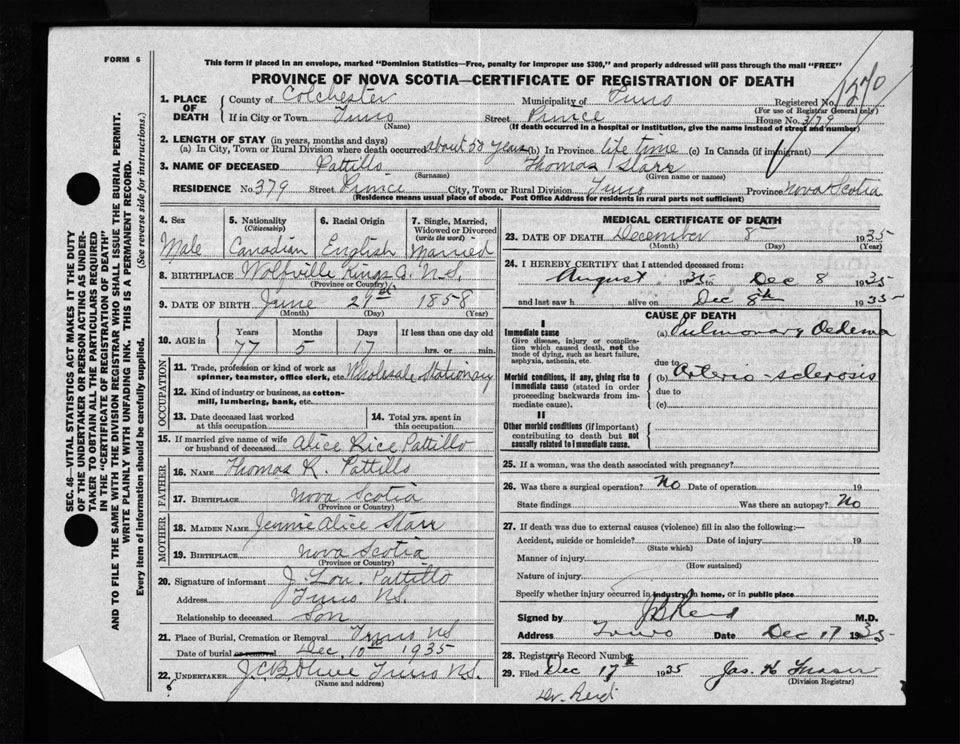 FORM 6
This form if placed in an envelope, marked "Dominion Statistics—Free, penalty for improper use $300," and properly addressed will pass through the mail "FREE"
PROVINCE OF NOVA SCOTIA—CERTIFICATE OF REGISTRATION OF DEATH
1. PLACE OF DEATH
County of Colchester Municipality of Truro Registered No. 1370
(For use of Registrar General only)
If in City or Town Truro Street Prince House No. 379
(Name) (If death occurred in a hospital or institution, give the name instead of street and number)
2. LENGTH OF STAY (in years, months and days)
(a) In City, Town or Rural Division where death occurred about 50 years (b) In Province life time (c) In Canada (if immigrant)
3. NAME OF DECEASED Pattillo Thomas Starr
(Surname) (Given name or names)
RESIDENCE No. 379 Street Prince City, Town or Rural Division Truro Province Nova Scotia
(Residence means usual place of abode. Post Office Address for residents in rural parts not sufficient)
SEC. 46—VITAL STATISTICS ACT MAKES IT THE DUTY
OF THE UNDERTAKER OR PERSON ACTING AS UNDER-
TAKER TO OBTAIN ALL THE PARTICULARS REQUIRED
IN THE "CERTIFICATE OF REGISTRATION OF DEATH"
AND TO FILE THE SAME WITH THE DIVISION REGISTRAR WHO SHALL ISSUE THE BURIAL PERMIT.
WRITE PLAINLY WITH UNFADING INK. THIS IS A PERMANENT RECORD.
Every item of information should be carefully supplied. (See reverse side for instructions.)
4. Sex
Male
5. Nationality
(Citizenship)
Canadian
6. Racial Origin
English
7. Single, Married,
Widowed or Divorced
(write the word)
Married
8. BIRTHPLACE Wolfville Kings Co. N.S.
(Province or Country)
9. DATE OF BIRTH June 21st 1858
(Month) (Day) (Year)
10. AGE in
Years Months Days If less than one day old
77 5 17 hrs. or min.
OCCUPATION
11. Trade, profession or kind of work as
spinner, teamster, office clerk, etc. Wholesale Stationary
12. Kind of industry or business, as cotton-
mill, lumbering, bank, etc.
13. Date deceased last worked
at this occupation
14. Total yrs. spent in
this occupation
15. If married give name of wife
or husband of deceased Alice Rice Pattillo
FATHER
16. NAME Thomas R. Pattillo
17. BIRTHPLACE Nova Scotia
(Province or Country)
MOTHER
18. MAIDEN NAME Jennie Alice Starr
19. BIRTHPLACE Nova Scotia
(Province or Country)
20. Signature of informant J. Lou. Pattillo
Address Truro N.S.
Relationship to deceased Son
21. Place of Burial, Cremation or Removal Truro N.S
Date of burial or removal Dec. 10th 1935
22. UNDERTAKER Truro N.S.
(Name and address)
MEDICAL CERTIFICATE OF DEATH
23. DATE OF DEATH December 8th 1935
(Month) (Day) (Year)
24. I HEREBY CERTIFY that I attended deceased from:
August 1935 to Dec 8 1935
and last saw h alive on Dec 8th 1935
CAUSE OF DEATH
I
Immediate cause
Give disease, injury or complica-
tion which caused death, not the
mode of dying, such as heart failure,
asphyxia, asthenia, etc.
(a) Pulmonary Oedema
due to
Morbid conditions, if any, giving rise to
immediate cause (stated in order
proceeding backwards from im-
mediate cause).
(b) Arterio-sclerosis
due to
(c)
II
Other morbid conditions (if important)
contributing to death but not
causally related to immediate cause.
25. If a woman, was the death associated with pregnancy?
26. Was there a surgical operation? No Date of operation 19
State findings Was there an autopsy? No
27. If death was due to external causes (violence) fill in also the following:—
Accident, suicide or homicide? Date of injury 19
(State which)
Manner of injury
(How sustained)
Nature of injury
Specify whether injury occurred in industry, in home, or in public place
Signed by J B Reid M.D.
Address Truro Date Dec 17 1935
28. Registrar's Record Number
29. Filed Dec 17th 1935 Jas. H Fraser
(Division Registrar)
Dr. Reid